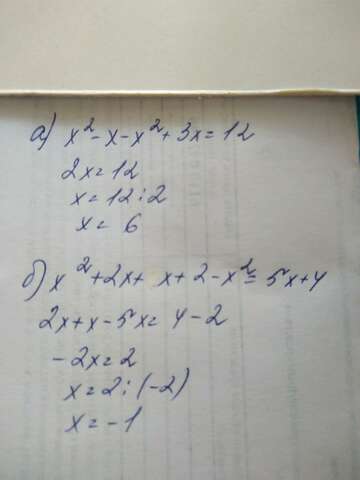 а) x² - x - x² + 3x = 12
2x = 12
x = 12 : 2
x = 6
б) x² + 2x + x + 2 - x² = 5x + 4
2x + x - 5x = 4 - 2
- 2x = 2
x = 2 : (-2)
x = - 1